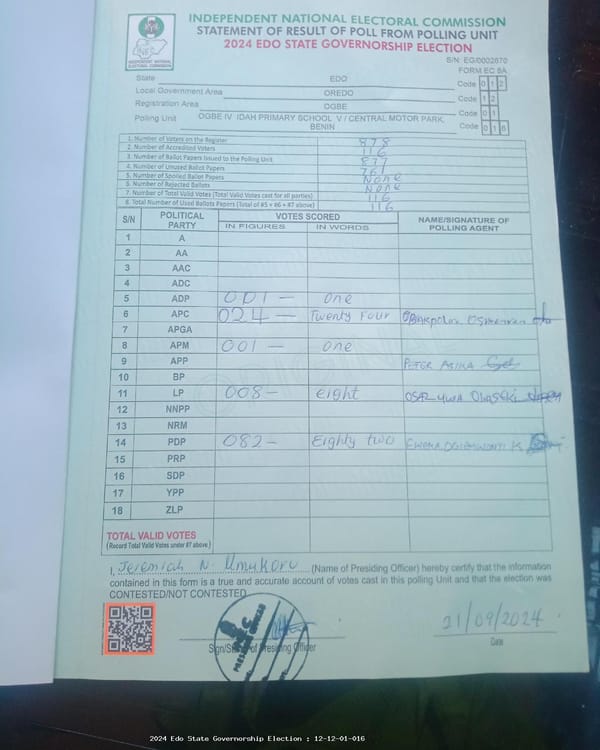 INDEPENDENT NATIONAL ELECTORAL COMMISSION
STATEMENT OF RESULT OF POLL FROM POLLING UNIT
2024 EDO STATE GOVERNORSHIP ELECTION
S/N: EG/0002670
FORM EC 8A
State EDO Code 1 2
Local Government Area OREDO Code 1 2
Registration Area OGBE Code 0 1
Polling Unit OGBE IV IDAH PRIMARY SCHOOL V / CENTRAL MOTOR PARK, BENIN Code 0 1 6
1. Number of Voters on the Register 878
2. Number of Accredited Voters 116
3. Number of Ballot Papers Issued to the Polling Unit 877
4. Number of Unused Ballot Papers 761
5. Number of Spoiled Ballot Papers None
6. Number of Rejected Ballots None
7. Number of Total Valid Votes (Total Valid Votes cast for all parties) 116
8. Total Number of Used Ballots Papers (Total of #5 + #6 + #7 above) 116
S/N POLITICAL PARTY VOTES SCORED NAME/SIGNATURE OF POLLING AGENT
IN FIGURES IN WORDS
1 A
2 AA
3 AAC
4 ADC
5 ADP 001 — one
6 APC 024 — Twenty Four
7 APGA
8 APM 001 — one
9 APP PETER
10 BP
11 LP 008 — eight
12 NNPP
13 NRM
14 PDP 082 — Eighty two
15 PRP
16 SDP
17 YPP
18 ZLP
TOTAL VALID VOTES
(Record Total Valid Votes under #7 above)
I, Jeremiah N. Umukoru (Name of Presiding Officer) hereby certify that the information
contained in this form is a true and accurate account of votes cast in this polling Unit and that the election was
CONTESTED/NOT CONTESTED
21/09/2024
Sign/Stamp of Presiding Officer Date
2024 Edo State Governorship Election : 12-12-01-016